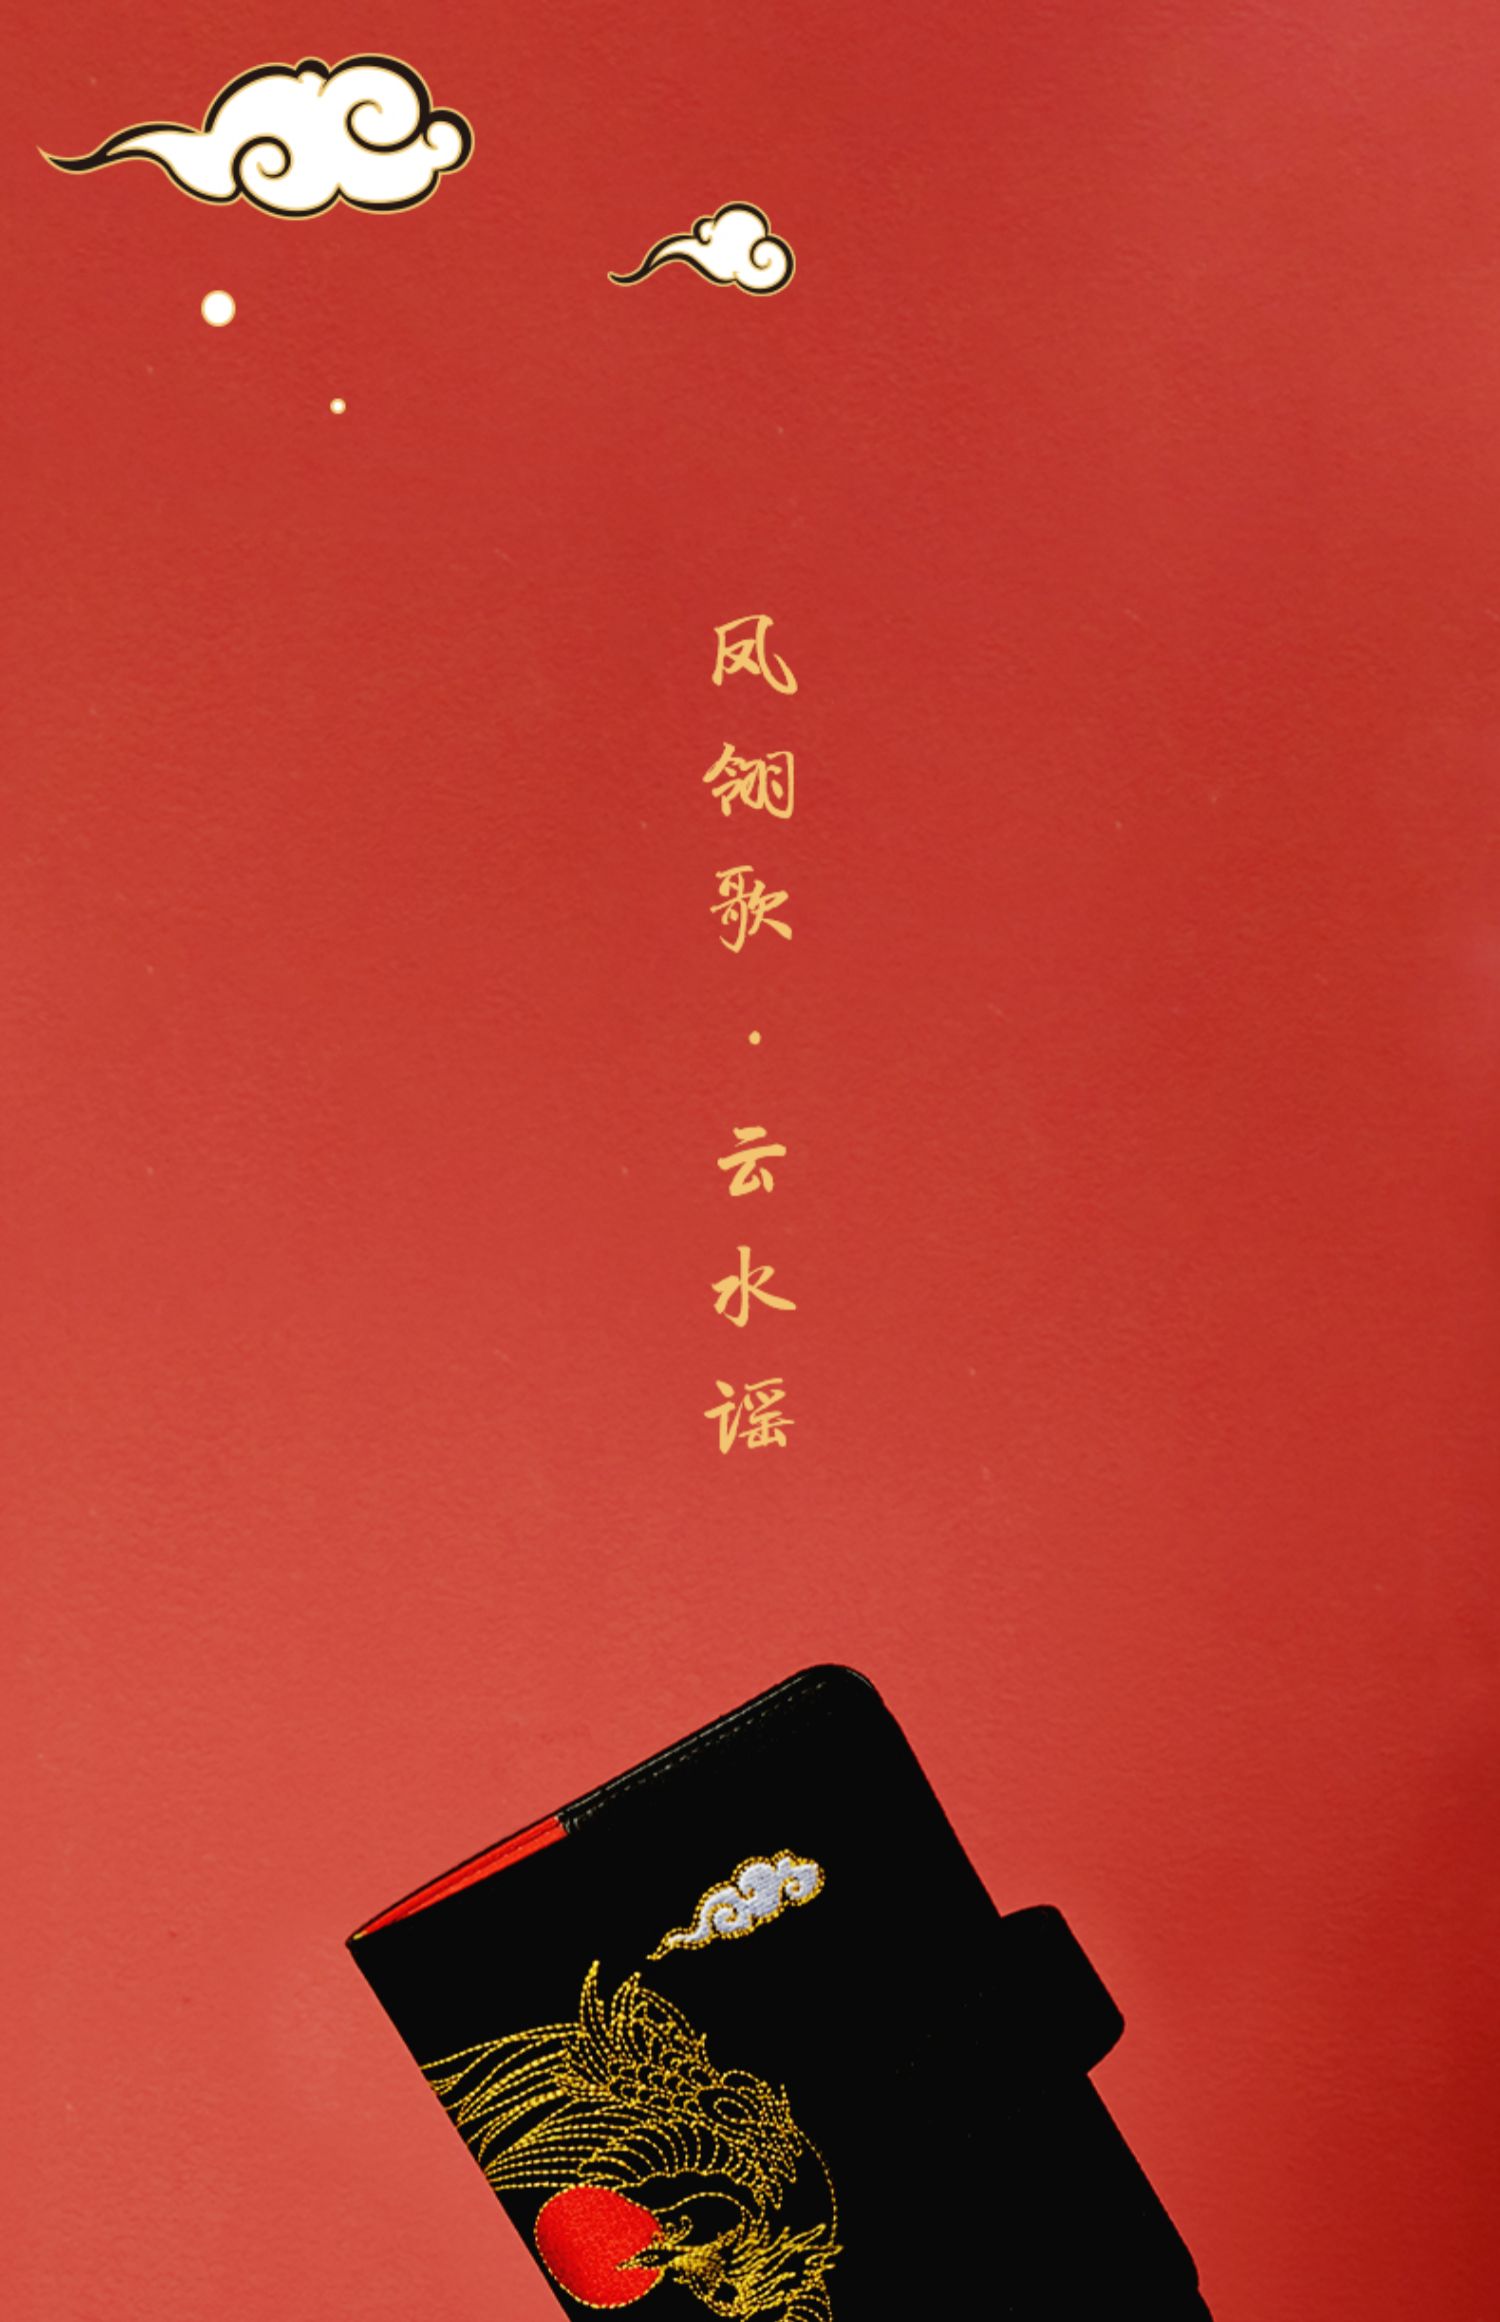 凤翎歌·云水谣